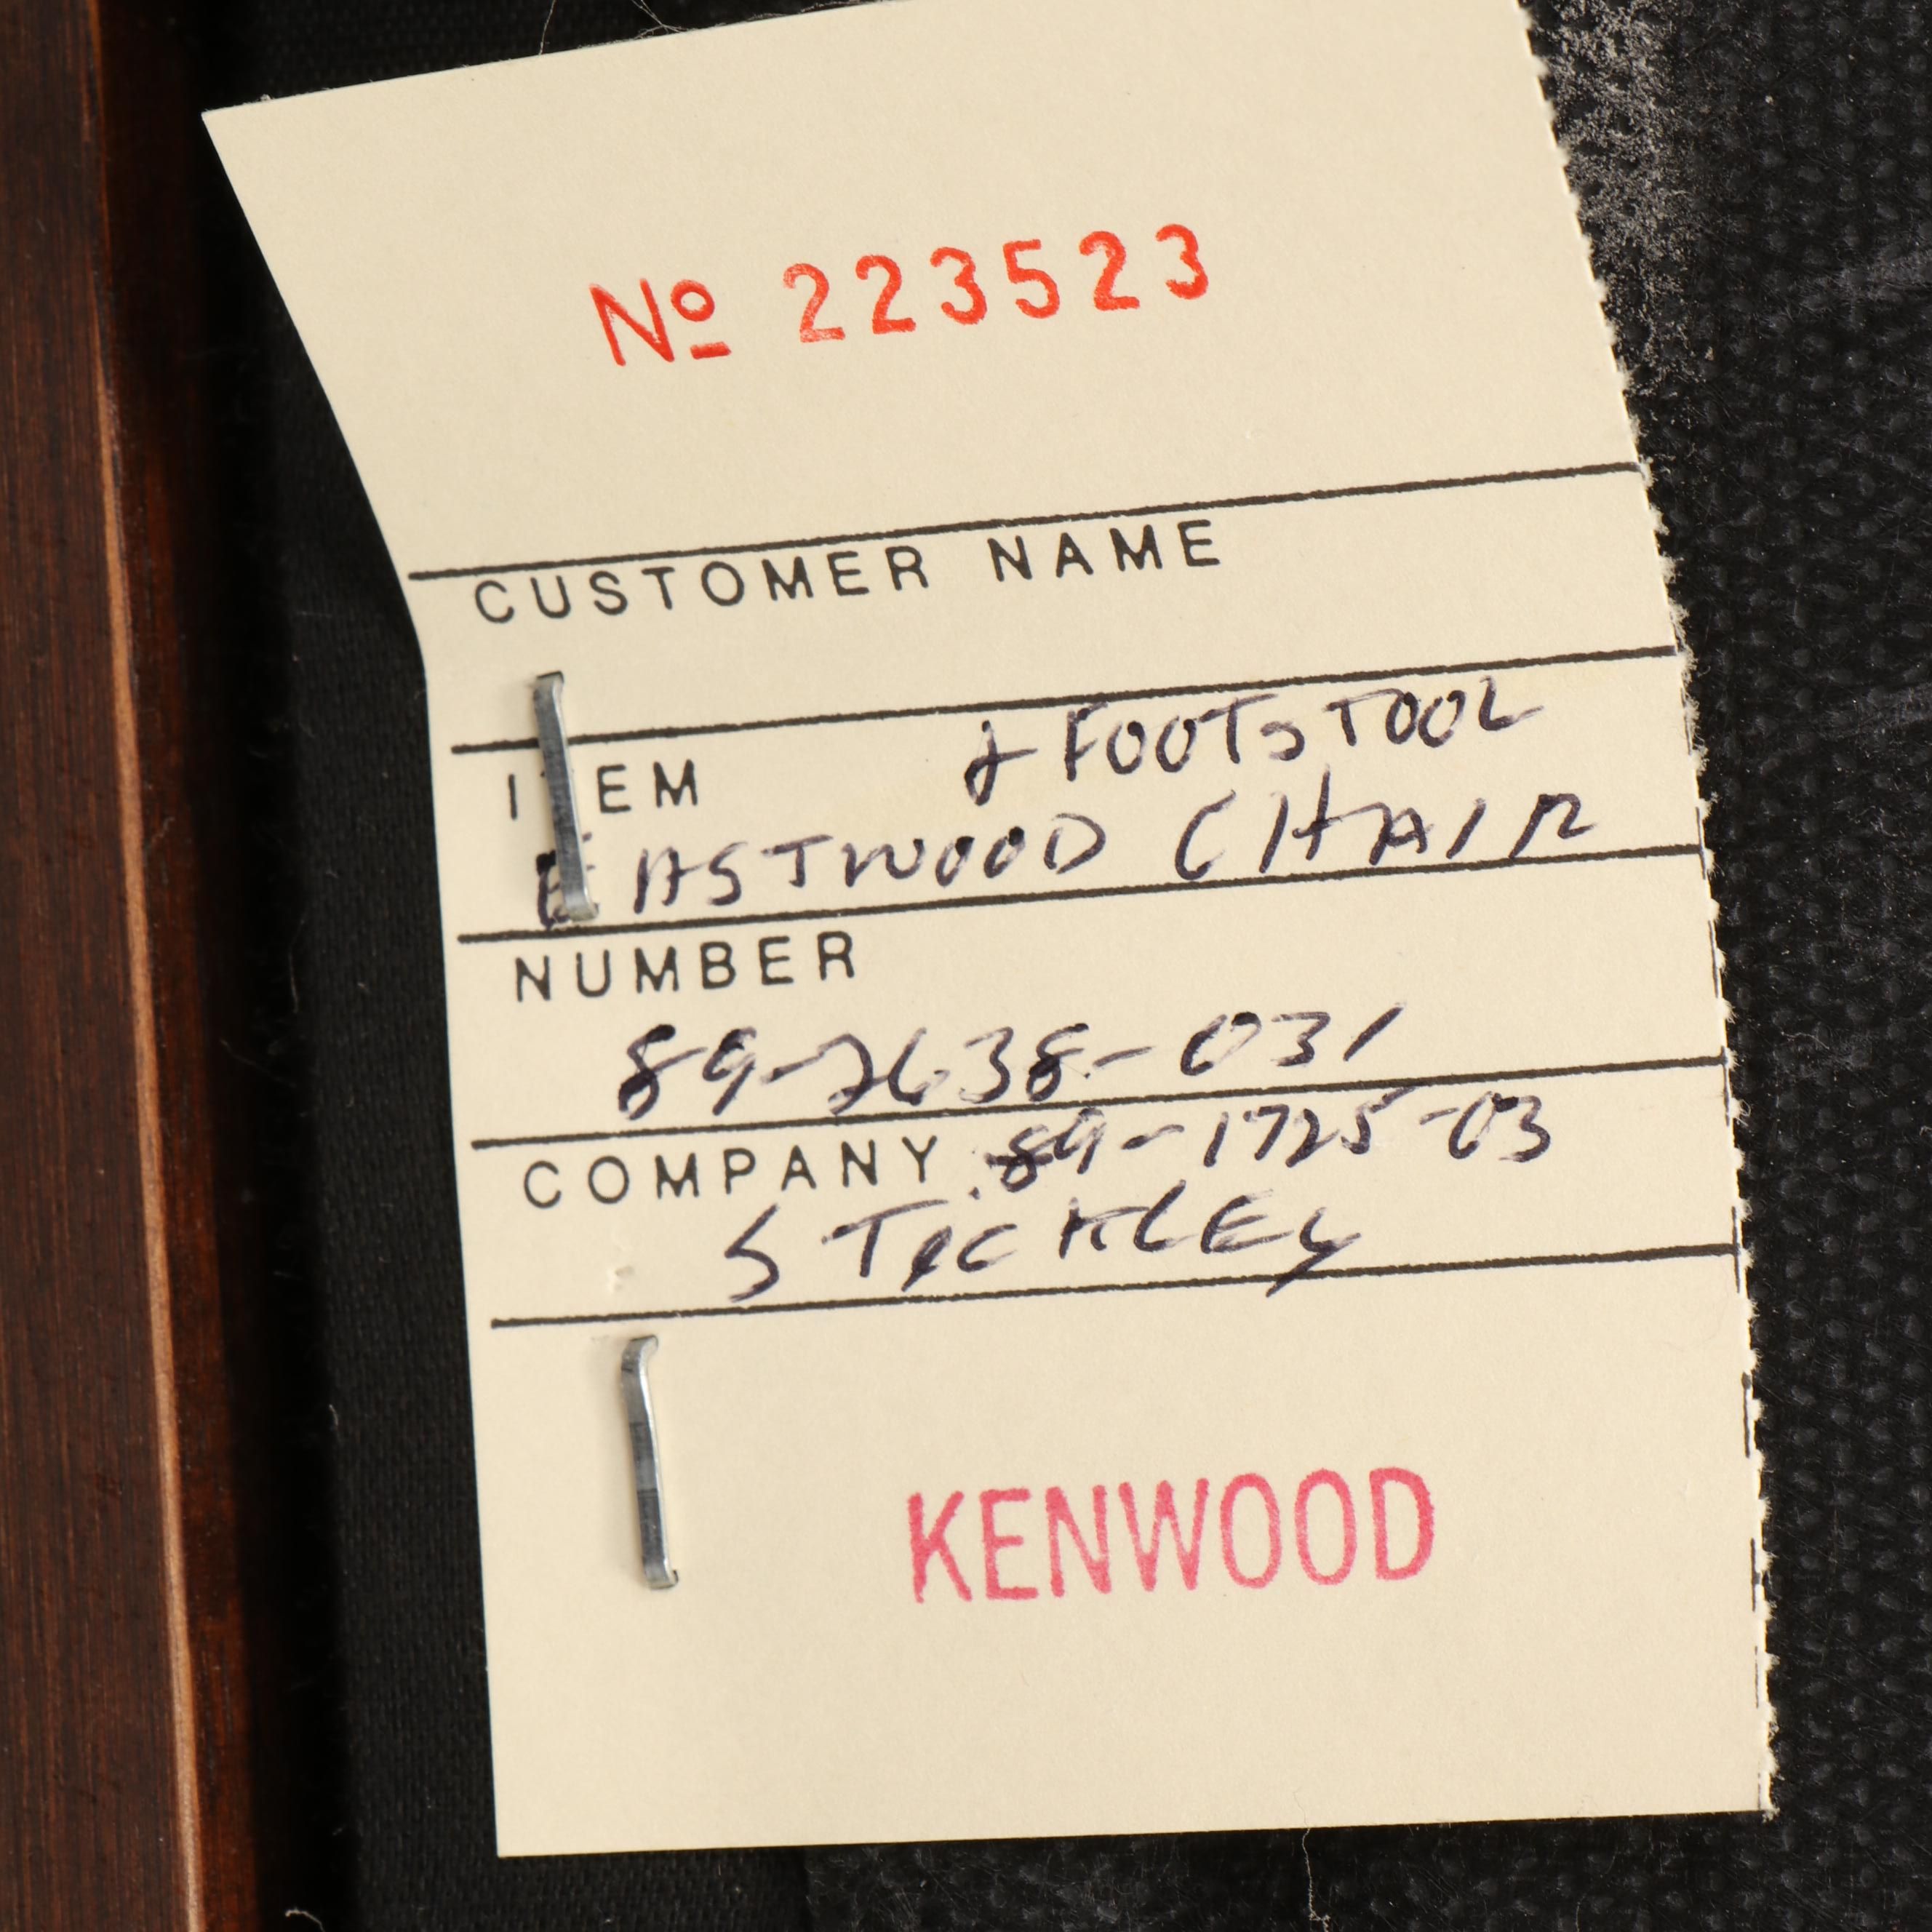 Nº 223523
CUSTOMER NAME
ITEM & FOOTSTOOL
EASTWOOD CHAIR
NUMBER
89-2638-031
COMPANY 89-1725-03
STICKLEY
KENWOOD